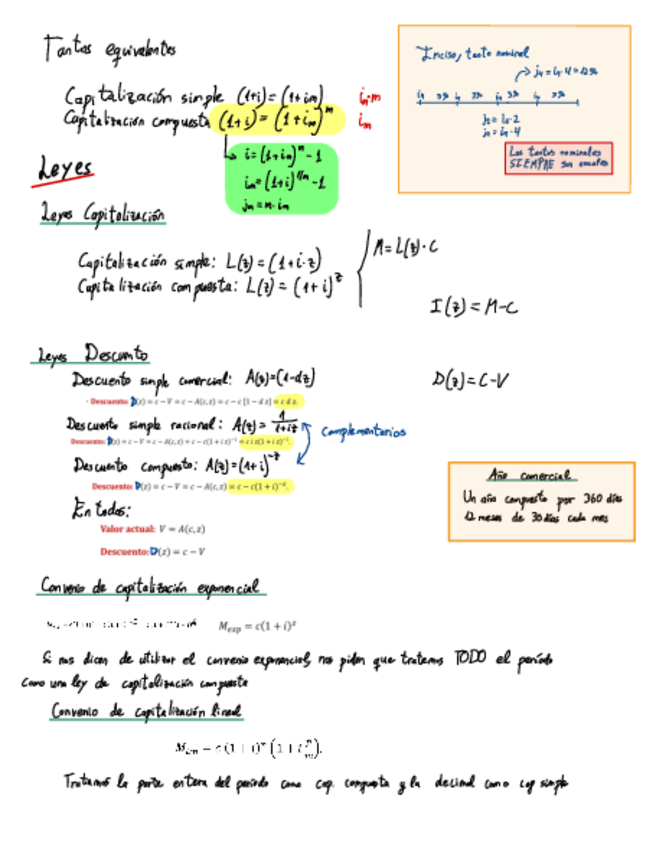 Tantos equivalentes
Capitalización simple (1+i)=(1+im) in·m
Capitalización compuesta (1+i) = (1+im)^m im
i=(1+im)^m -1
im=(1+i)^1/m -1
jm=m·im
Inciso, tanto nominal
Los tantos nominales
SIEMPRE son anuales
Leyes
Leyes Capitalización
Capitalización simple: L(z)=(1+i·z)
Capitalización compuesta: L(z)=(1+i)^z
M=L(z)·C
I(z)=M-C
Leyes Descuento
Descuento simple comercial: A(z)=(1-dz)
D(z)=C-V
· Descuento: D(z) = c − V = c − A(c,z) = c − c[1 − d z] = c d z.
Descuento simple racional: A(z)= 1/1+iz
Complementarios
Descuento: D(z) = c − V = c − A(c,z) = c − c(1 + i z)^−1 = c i z(1 + i z)^−1.
Descuento compuesto: A(z)=(1+i)^-z
Descuento: D(z) = c − V = c − A(c,z) = c − c(1 + i)^−z.
En todos:
Valor actual: V = A(c,z)
Descuento: D(z) = c − V
Año comercial
Un año compuesto por 360 días
12 meses de 30 días cada mes
Convenio de capitalización exponencial
M_exp = c(1 + i)^z
Si nos dicen de utilizar el convenio exponencial, nos piden que tratemos TODO el período
como una ley de capitalización compuesta
Convenio de capitalización lineal
Tratamos la parte entera del período como cap. compuesta y la decimal como cap simple